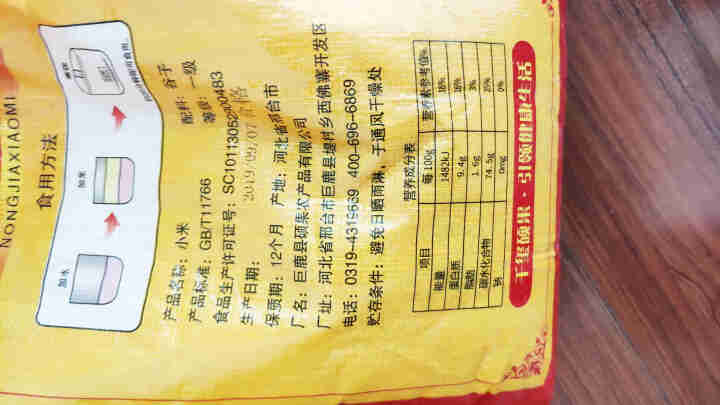 NONGJIAXIAOMI
食用方法
加水
加米
产品名称：小米 配料：谷子
产品标准：GB/T11766 等级：一级
食品生产许可证号：SC10113052900483
生产日期：2019/09/07 合格
保质期：12个月 产地：河北省邢台市
厂名：巨鹿县硕果农产品有限公司
厂址：河北省邢台市巨鹿县堤村乡西佛寨开发区
电话：0319-4319639 400-696-6869
贮存条件：避免日晒雨淋、于通风干燥处
营养成分表
项目 每100g 营养素参考值%
能量 1482kJ 18%
蛋白质 9.4g 16%
脂肪 1.6g 3%
碳水化合物 74.5g 25%
钠 0mg 0%
千玺硕果·引领健康生活